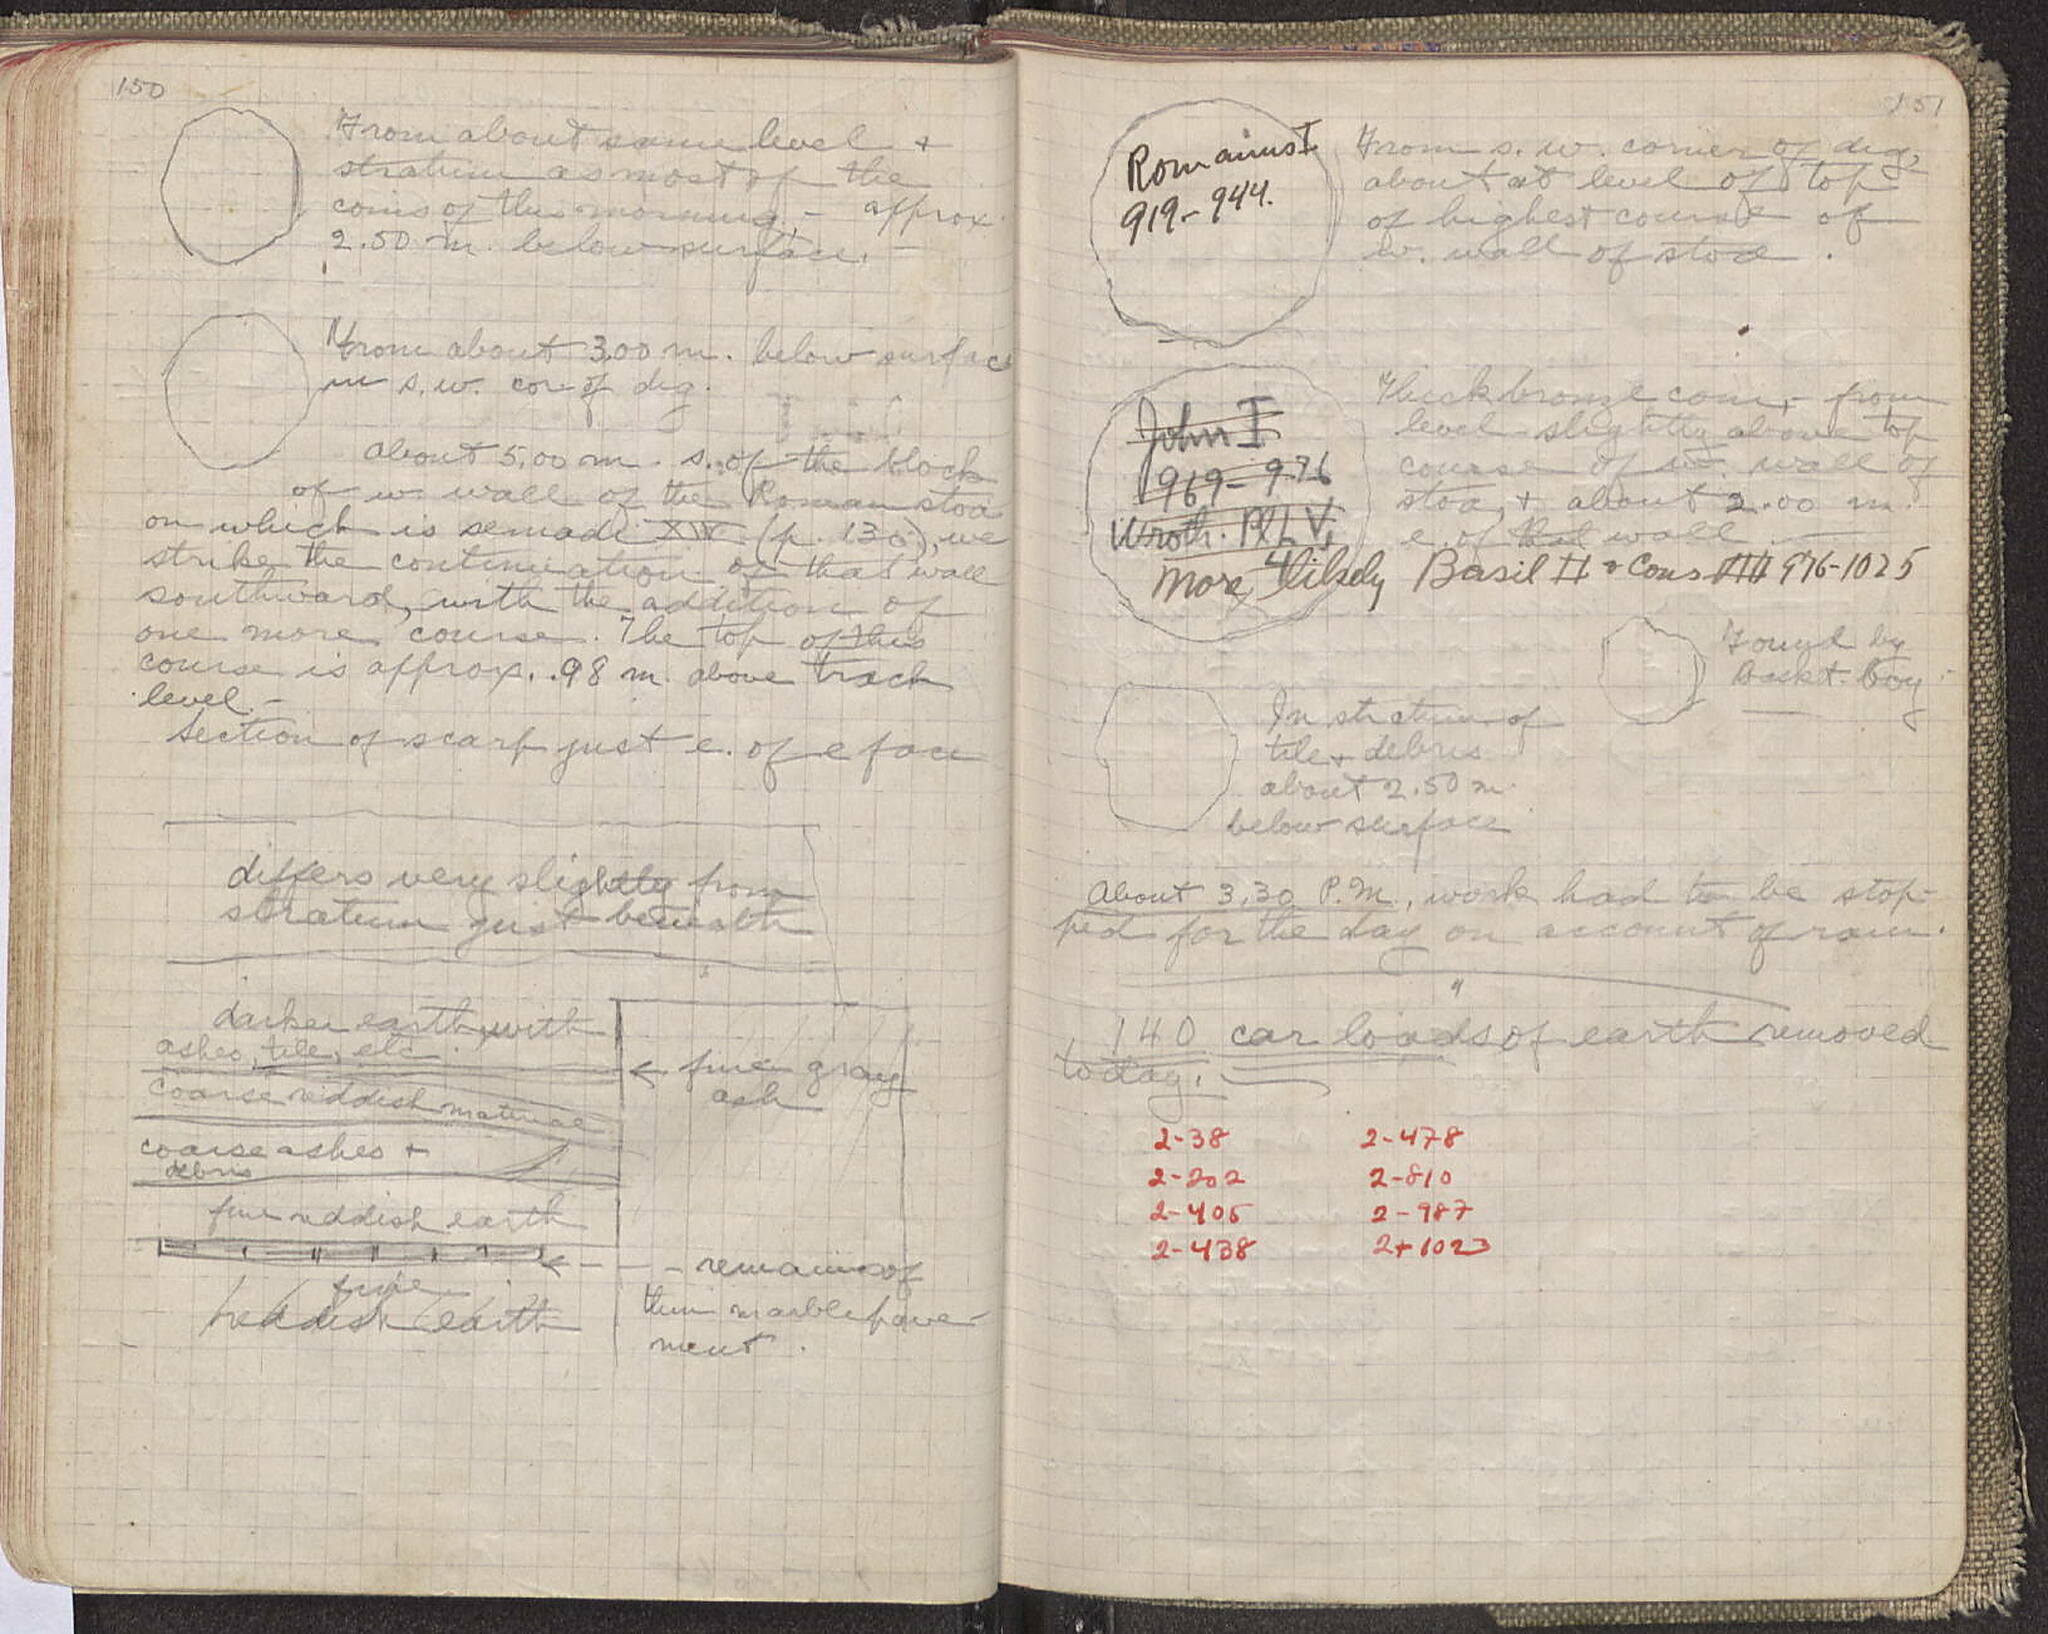 150
From about same level +
stratum as most of the
coins of this morning, - approx.
2.50 m. below surface. -
From about 3.00 m. below surface
in s.w. cor of dig.
About 5.00 m. s. of the block
of w. wall of the Roman stoa
on which is semadi XIV (p. 130), we
strike the continuation of that wall
southward, with the addition of
one more course. The top of this
course is approx. .98 m. above track
level. -
Section of scarp just e. of e face
differs very slightly from
stratum just beneath
darker earth with
ashes, tile, etc.
← fine gray
ash
coarse reddish material
coarse ashes +
debris
fine reddish earth
← - - - remains of
thin marble pave-
ment.
fine
reddish earth
151
Romanus I
919-944.
From s.w. corner of dig,
about at level of top
of highest course of
w. wall of stoa.
John I
969-976
Wroth. Pl LV,
4
Thick bronze coin, - from
level slightly above top
course of w. wall of
stoa, + about 2.00 m.
e. of that wall. -
More likely Basil II + Cons VIII 976-1025
Found by
basket-boy
In stratum of
tile + debris
about 2.50 m.
below surface
About 3.30 P.M., work had to be stop-
ped for the day on account of rain.
140 car loads of earth removed
today.
2-38 2-478
2-202 2-810
2-405 2-987
2-438 2+1023